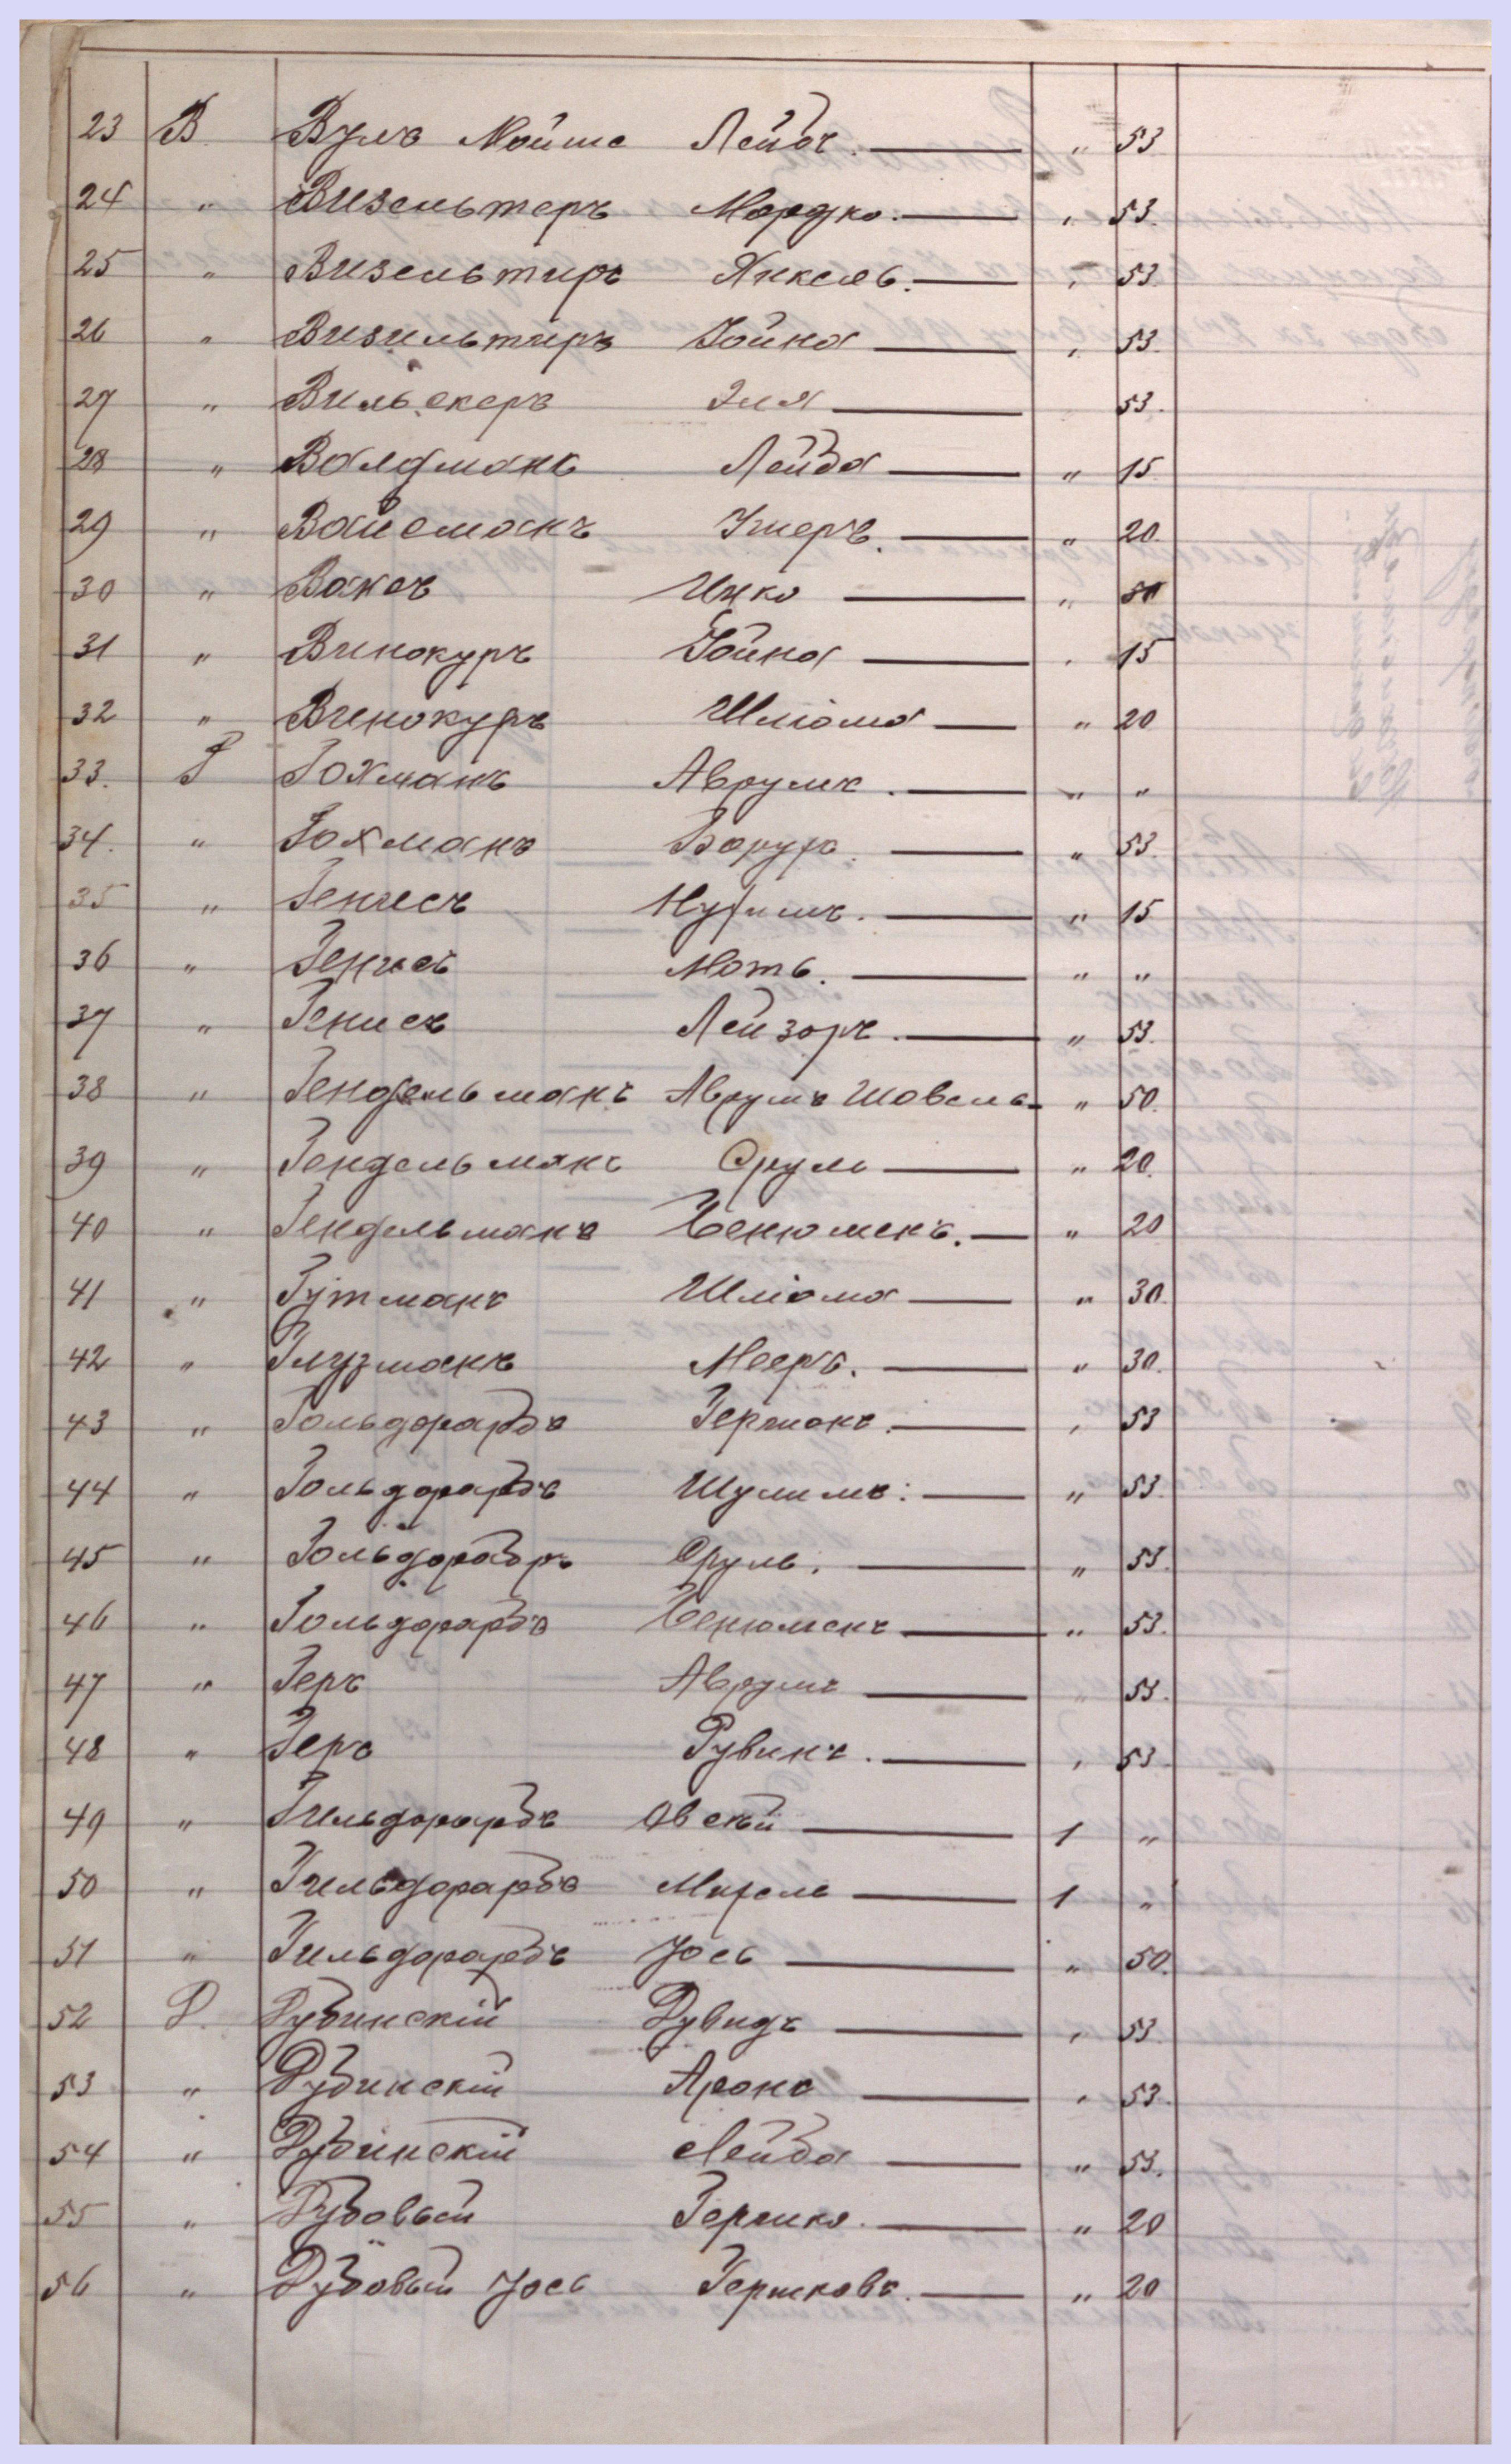 23 В Вулъ Мойше Лейбъ. — " 53
24 " Визельтеръ Мордко. — " 53.
25 " Визельтиръ Янкель. — " 53.
26 " Визильтиръ Іойна — " 53.
27 " Эля — 53.
28 " Валдманъ Лейба — " 15.
29 " Вайсманъ Ушеръ. — " 20.
30 " Ваксъ Ицко — "
31 " Винокуръ Іойна — " 15
32 " Винокуръ Шліома — " 20
33. Г Гохманъ Аврумъ. — " "
34. " Гохманъ Борухъ. — " 53.
35 " Генисъ Нухимъ. — " 15
36 " Генисъ Моть. — " "
37 " Генисъ Лейзоръ. — " 53.
38 " Гендельманъ Аврумъ Шовель — " 50.
39 " Гендельманъ Сруль — " 20.
40 " Гендельманъ Бенюменъ. — " 20
41 " Гутманъ Шліома — " 30.
42 " Глузманъ Мееръ. — " 30.
43 " Гольдфарбъ Германъ. — " 53
44 " Гольдфарбъ Шулимъ. — " 53.
45 " Сруль. — " 53.
46 " Гольдфарбъ Бенюменъ — " 53.
47 " Геръ Аврумъ — " 53.
48 " Геръ Рувинъ. — " 53
49 " Гильдфарбъ Овсѣй — 1 "
50 " Гильдфарбъ — 1 "
51 " Гильдфарбъ Іось — " 50.
52 Д. Дубинскій Дувидъ — " 53.
53 " Дубинскій Аронъ — " 53.
54 " Дубинскій Лейба — " 53.
55 " Дубовый Гершко. — " 20
56 " Дубовый Іось Гершковъ. — " 20